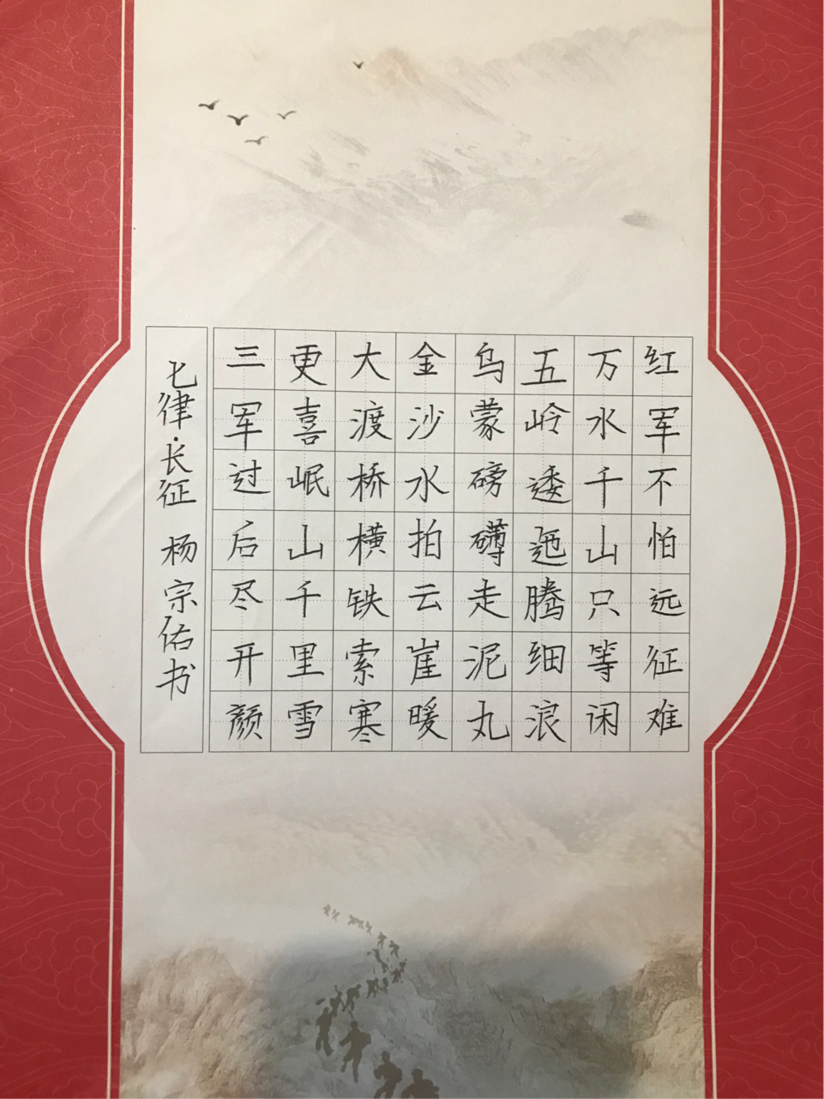 红军不怕远征难
万水千山只等闲
五岭逶迤腾细浪
乌蒙磅礴走泥丸
金沙水拍云崖暖
大渡桥横铁索寒
更喜岷山千里雪
三军过后尽开颜
七律·长征 杨宗佑书